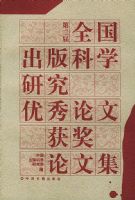 全国
出版科学
研究
优秀论文
获奖
论文集
中国书籍出版社